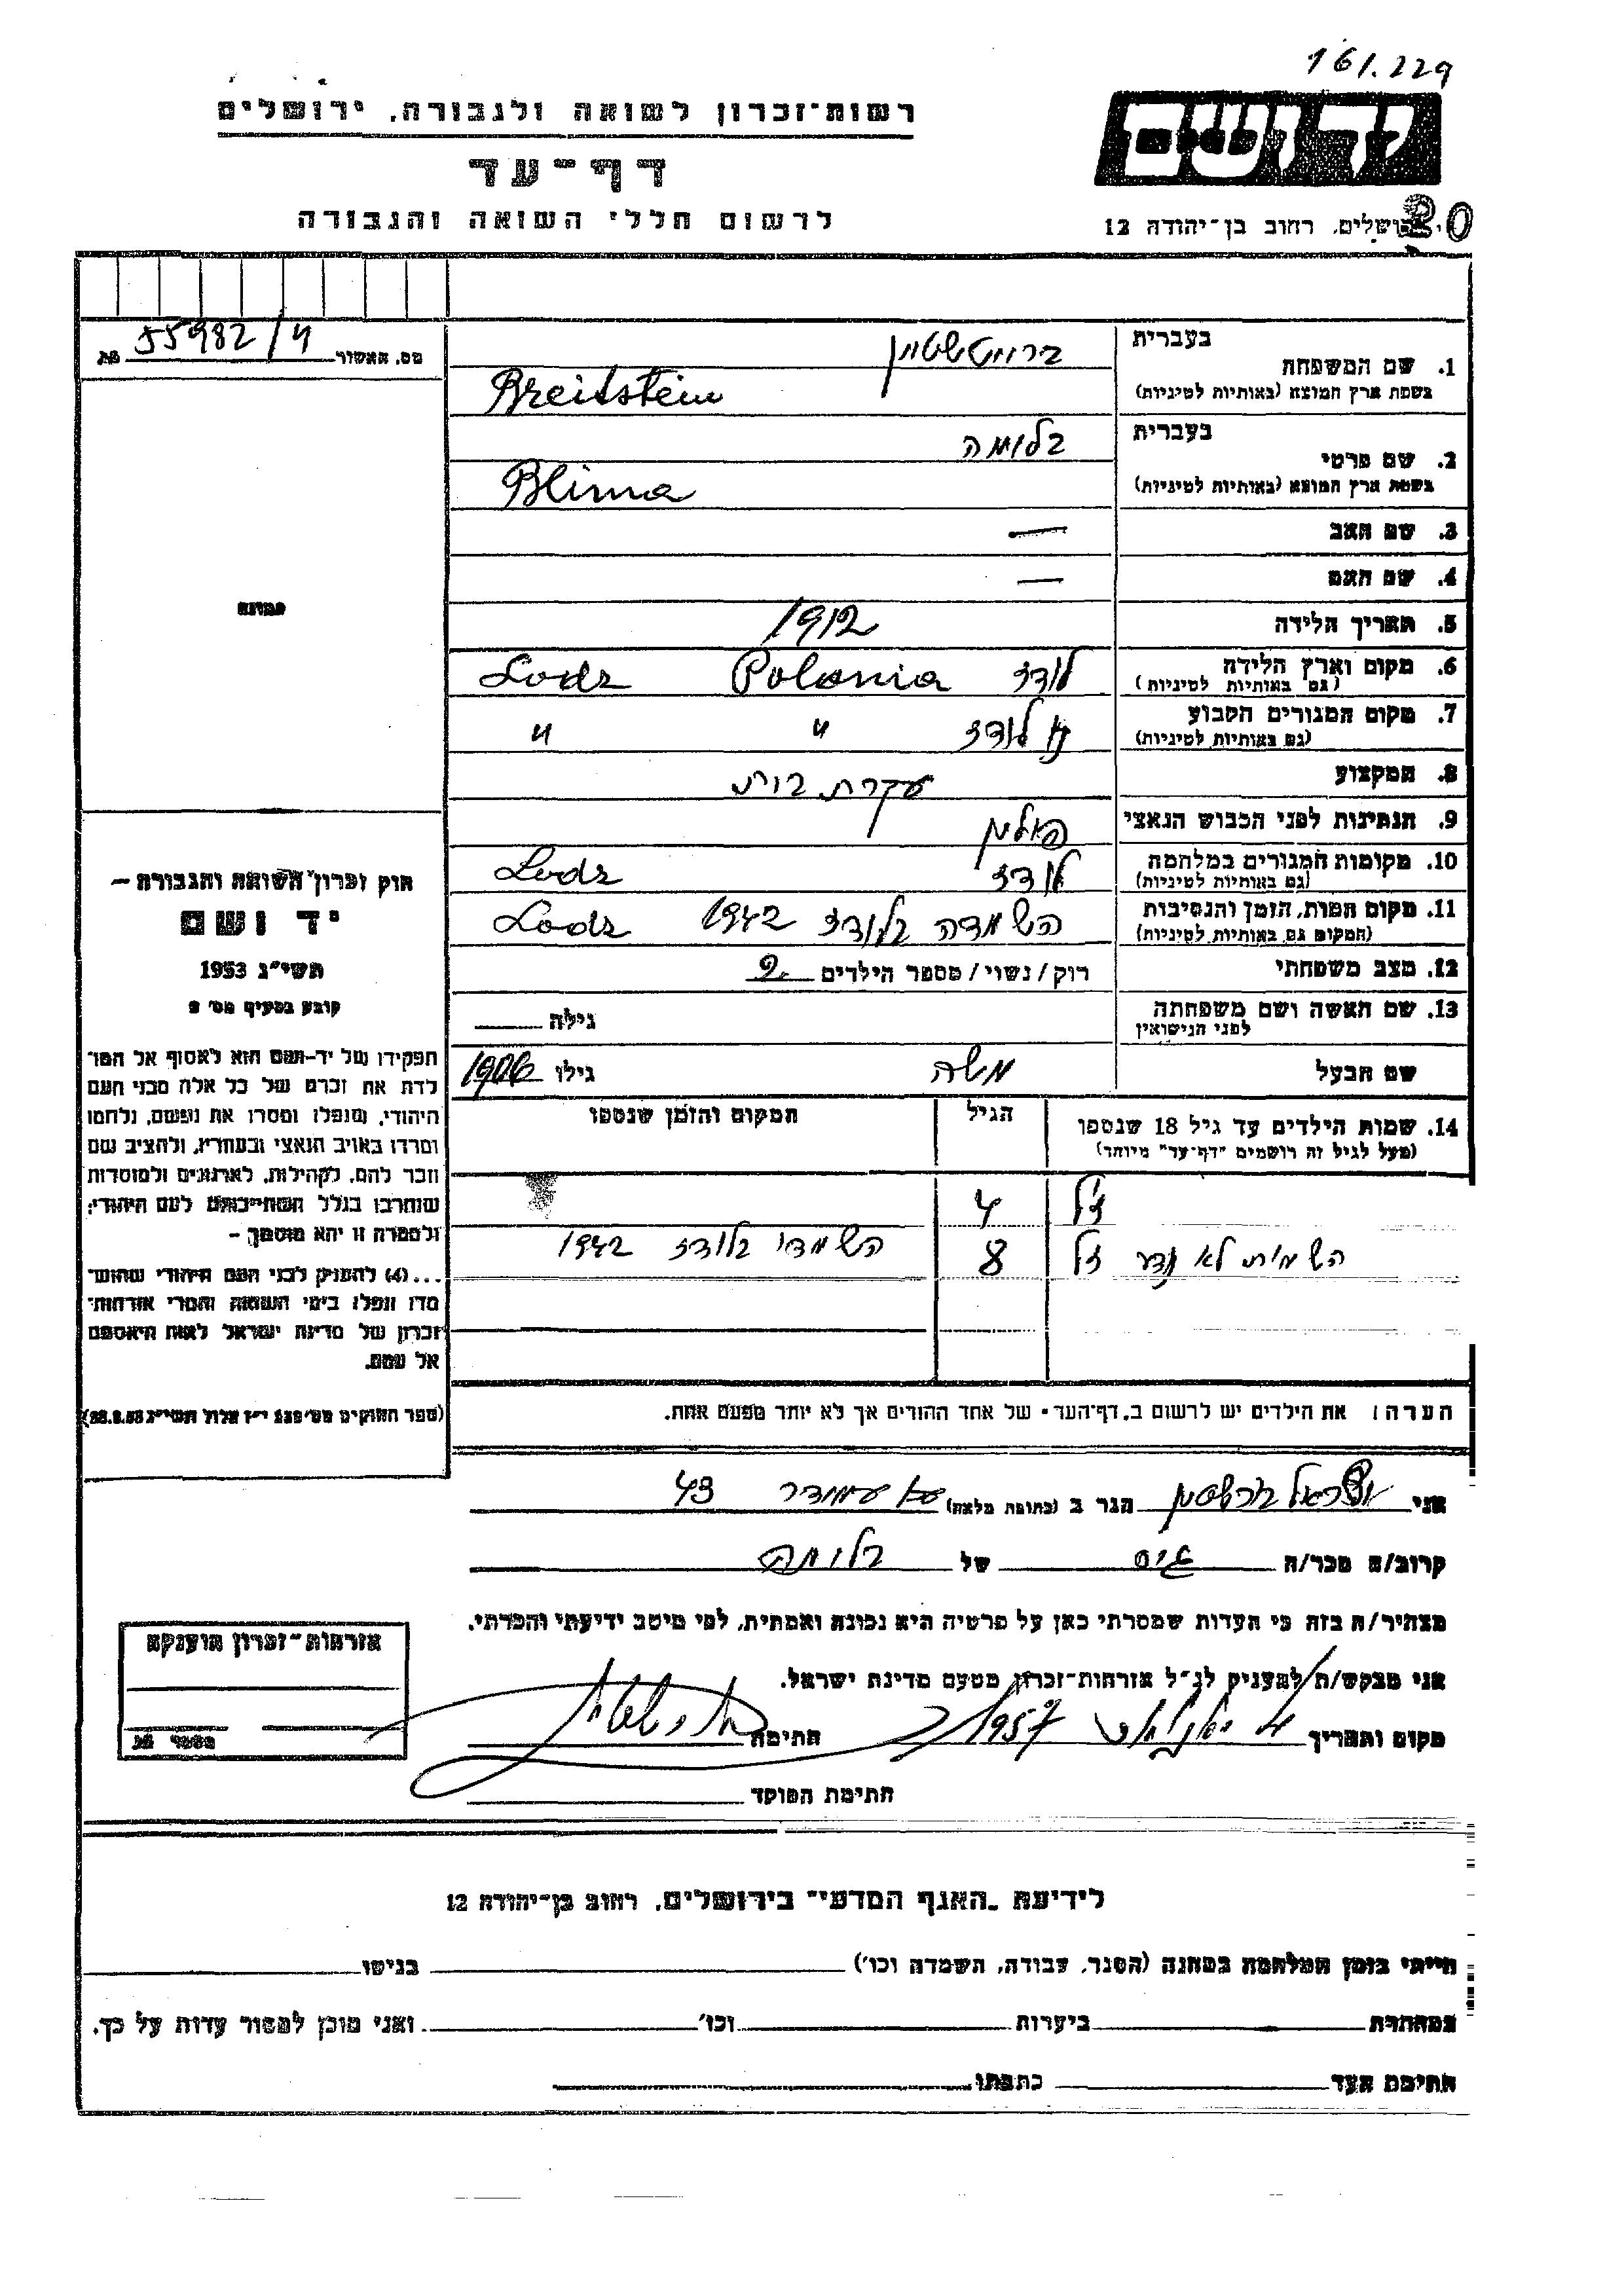 161.229
רשות־זכרון לשואה ולגבורה, ירושלים
יד ושם
דף־עד
לרשום חללי השואה והגבורה
ירושלים, רחוב בן־יהודה 12
20
מס. האשור 55982/4
1. שם המשפחה בעברית ברייטשטיין
בשפת ארץ המוצא (באותיות לטיניות) Breitstein
2. שם פרטי בעברית בלומה
בשפת ארץ המוצא (באותיות לטיניות) Blima
3. שם האב —
4. שם האם —
תמונה
5. תאריך הלידה 1912
6. מקום וארץ הלידה (גם באותיות לטיניות) לודז Polania Lodz
7. מקום המגורים הקבוע (גם באותיות לטיניות) לודז " "
8. המקצוע עקרת בית
9. הנתינות לפני הכבוש הנאצי פולין
10. מקומות המגורים במלחמה (גם באותיות לטיניות) לודז Lodz
11. מקום המות, הזמן והנסיבות (המקום גם באותיות לטיניות) השמדה בלודז 1942 Lodz
12. מצב משפחתי רוק/נשוי/מספר הילדים 2
13. שם האשה ושם משפחתה לפני הנישואין גילה
שם הבעל משה גילו 1906
14. שמות הילדים עד גיל 18 שנספו הגיל המקום והזמן שנספו
(מעל לגיל זה רושמים "דף־עד" מיוחד)
4
השמות לא 8 השמדו בלודז 1942
הערה: את הילדים יש לרשום ב„דף־העד" של אחד ההורים אך לא יותר מפעם אחת.
חוק זכרון השואה והגבורה –
יד ושם
תשי"ג 1953
קובע בסעיף מס' 2
תפקידו של יד־ושם הוא לאסוף אל המו־
לדת את זכרם של כל אלה מבני העם
היהודי, שנפלו ומסרו את נפשם, נלחמו
ומרדו באויב הנאצי ובעוזריו, ולהציב שם
וזכר להם, לקהילות, לארגונים ולמוסדות
שנחרבו בגלל השתייכותם לעם היהודי;
ולמטרה זו יהא מוסמך –
...(4) להעניק לבני העם היהודי שהוש־
מדו ונפלו בימי השואה והמרי אזרחות־
זכרון של מדינת ישראל לאות היאספם
אל עמם.
(ספר החוקים מס' 132 י"ז אלול תשי"ג 28.8.53)
אני ישראל ברייטשטיין הגר ב (כתובת מלאה) 43
קרוב/ה מכר/ה גיס של בלומה
מצהיר/ה בזה כי העדות שמסרתי כאן על פרטיה היא נכונה ואמתית, לפי מיטב ידיעתי והכרתי.
אני מבקש/ת להעניק לנ"ל אזרחות־זכרון מטעם מדינת ישראל.
מקום ותאריך 1957 חתימה
חתימת הפוקד
אזרחות־זכרון הוענקה
מספר
לידיעת „האגף המדעי" בירושלים, רחוב בן־יהודה 12
הייתי בזמן המלחמה במחנה (הסגר, עבודה, השמדה וכו') בגיטו
במחתרת ביערות וכו' ואני מוכן למסור עדות על כך.
חתימת העד כתבתו